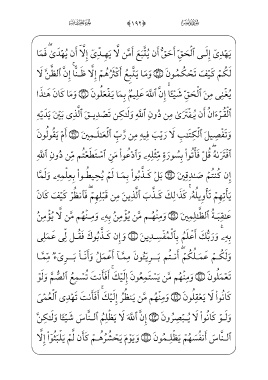 ﴿١٩٢﴾
يَهْدِىٓ إِلَى ٱلْحَقِّ أَحَقُّ أَن يُتَّبَعَ أَمَّن لَّا يَهِدِّىٓ إِلَّآ أَن يُهْدَىٰ ۖ فَمَا
لَكُمْ كَيْفَ تَحْكُمُونَ وَمَا يَتَّبِعُ أَكْثَرُهُمْ إِلَّا ظَنًّا ۚ إِنَّ ٱلظَّنَّ لَا
يُغْنِى مِنَ ٱلْحَقِّ شَيْـًٔا ۚ إِنَّ ٱللَّهَ عَلِيمٌۢ بِمَا يَفْعَلُونَ وَمَا كَانَ هَٰذَا
ٱلْقُرْءَانُ أَن يُفْتَرَىٰ مِن دُونِ ٱللَّهِ وَلَٰكِن تَصْدِيقَ ٱلَّذِى بَيْنَ يَدَيْهِ
وَتَفْصِيلَ ٱلْكِتَٰبِ لَا رَيْبَ فِيهِ مِن رَّبِّ ٱلْعَٰلَمِينَ أَمْ يَقُولُونَ
ٱفْتَرَىٰهُ ۖ قُلْ فَأْتُوا۟ بِسُورَةٍ مِّثْلِهِۦ وَٱدْعُوا۟ مَنِ ٱسْتَطَعْتُم مِّن دُونِ ٱللَّهِ
إِن كُنتُمْ صَٰدِقِينَ بَلْ كَذَّبُوا۟ بِمَا لَمْ يُحِيطُوا۟ بِعِلْمِهِۦ وَلَمَّا
يَأْتِهِمْ تَأْوِيلُهُۥ ۚ كَذَٰلِكَ كَذَّبَ ٱلَّذِينَ مِن قَبْلِهِمْ ۖ فَٱنظُرْ كَيْفَ كَانَ
عَٰقِبَةُ ٱلظَّٰلِمِينَ وَمِنْهُم مَّن يُؤْمِنُ بِهِۦ وَمِنْهُم مَّن لَّا يُؤْمِنُ
بِهِۦ ۚ وَرَبُّكَ أَعْلَمُ بِٱلْمُفْسِدِينَ وَإِن كَذَّبُوكَ فَقُل لِّى عَمَلِى
وَلَكُمْ عَمَلُكُمْ ۖ أَنتُم بَرِيٓـُٔونَ مِمَّآ أَعْمَلُ وَأَنَا۠ بَرِىٓءٌ مِّمَّا
تَعْمَلُونَ وَمِنْهُم مَّن يَسْتَمِعُونَ إِلَيْكَ ۚ أَفَأَنتَ تُسْمِعُ ٱلصُّمَّ وَلَوْ
كَانُوا۟ لَا يَعْقِلُونَ وَمِنْهُم مَّن يَنظُرُ إِلَيْكَ ۚ أَفَأَنتَ تَهْدِى ٱلْعُمْىَ
وَلَوْ كَانُوا۟ لَا يُبْصِرُونَ إِنَّ ٱللَّهَ لَا يَظْلِمُ ٱلنَّاسَ شَيْـًٔا وَلَٰكِنَّ
ٱلنَّاسَ أَنفُسَهُمْ يَظْلِمُونَ وَيَوْمَ يَحْشُرُهُمْ كَأَن لَّمْ يَلْبَثُوٓا۟ إِلَّا